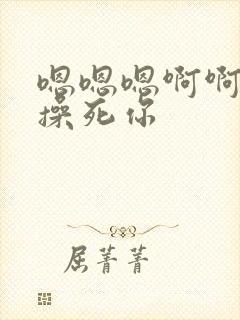 嗯嗯嗯啊啊
操死你
屈菁菁